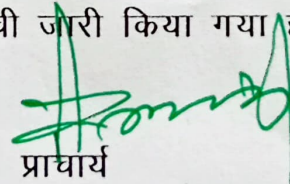 ची जारी किया गया
प्राचार्य